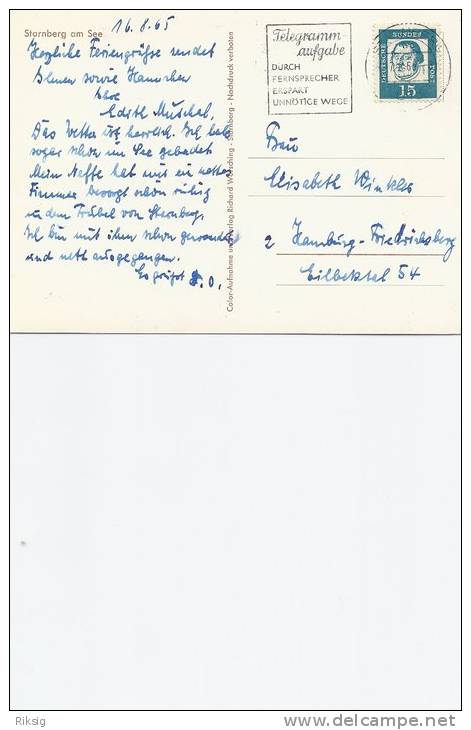 Starnberg am See
16.8.65
Herzliche Feriengrüsse sendet
Ihnen sowie Hannchen
Ihre
Edith Muschal.
Das Wetter ist herrlich. Ich habe
sogar schon im See gebadet
Mein Neffe hat mir ein nettes
Zimmer besorgt schön ruhig
in dem Trubel von Starnberg.
Ich bin mit ihm schon gewandert
und nett ausgegangen.
Es grüsst
Color-Aufnahme und Verlag Richard Starnberg - Nachdruck verboten
Telegramm
aufgabe
DURCH
FERNSPRECHER
ERSPART
UNNÖTIGE WEGE
DEUTSCHE
BUNDES
POST
15
Frau
Elisabeth Winkler
2 Hamburg-Friedrichsberg
Eilbektal 54
Riksig
www.delcampe.net